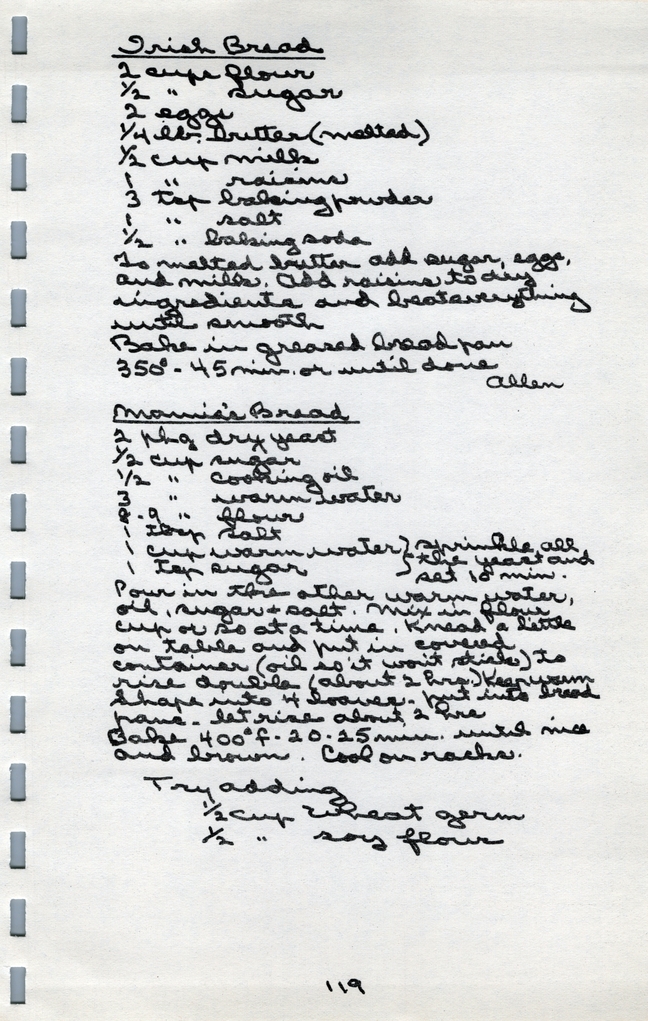 Irish Bread
2 cups flour
1/2 " sugar
2 eggs
1/4 lb. butter (melted)
1/2 cup milk
1 " raisins
3 tsp baking powder
1 " salt
1/2 " baking soda
To melted butter add sugar, eggs,
and milk. Add raisins to dry
ingredients and beat everything
until smooth
Bake in greased bread pan
350° - 45 min. or until done
Allen
Mamia's Bread
2 pkg dry yeast
1/2 cup sugar
1/2 " cooking oil
3 " warm water
8-9 " flour
1 tbsp salt
1 cup warm water } sprinkle all
1 tsp sugar } the yeast and
set 10 min.
Pour in the other warm water,
oil, sugar + salt. Mix in flour
cup or so at a time. Knead a little
on table and put in covered
container (oil so it won't stick) to
rise double (about 2 hrs.) Keep warm
Shape into 4 loaves - put into bread
pans - let rise about 2 hrs
Bake 400° f - 20-25 min. until nice
and brown. Cool on racks.
Try adding
1/2 cup wheat germ
1/2 " soy flour
119